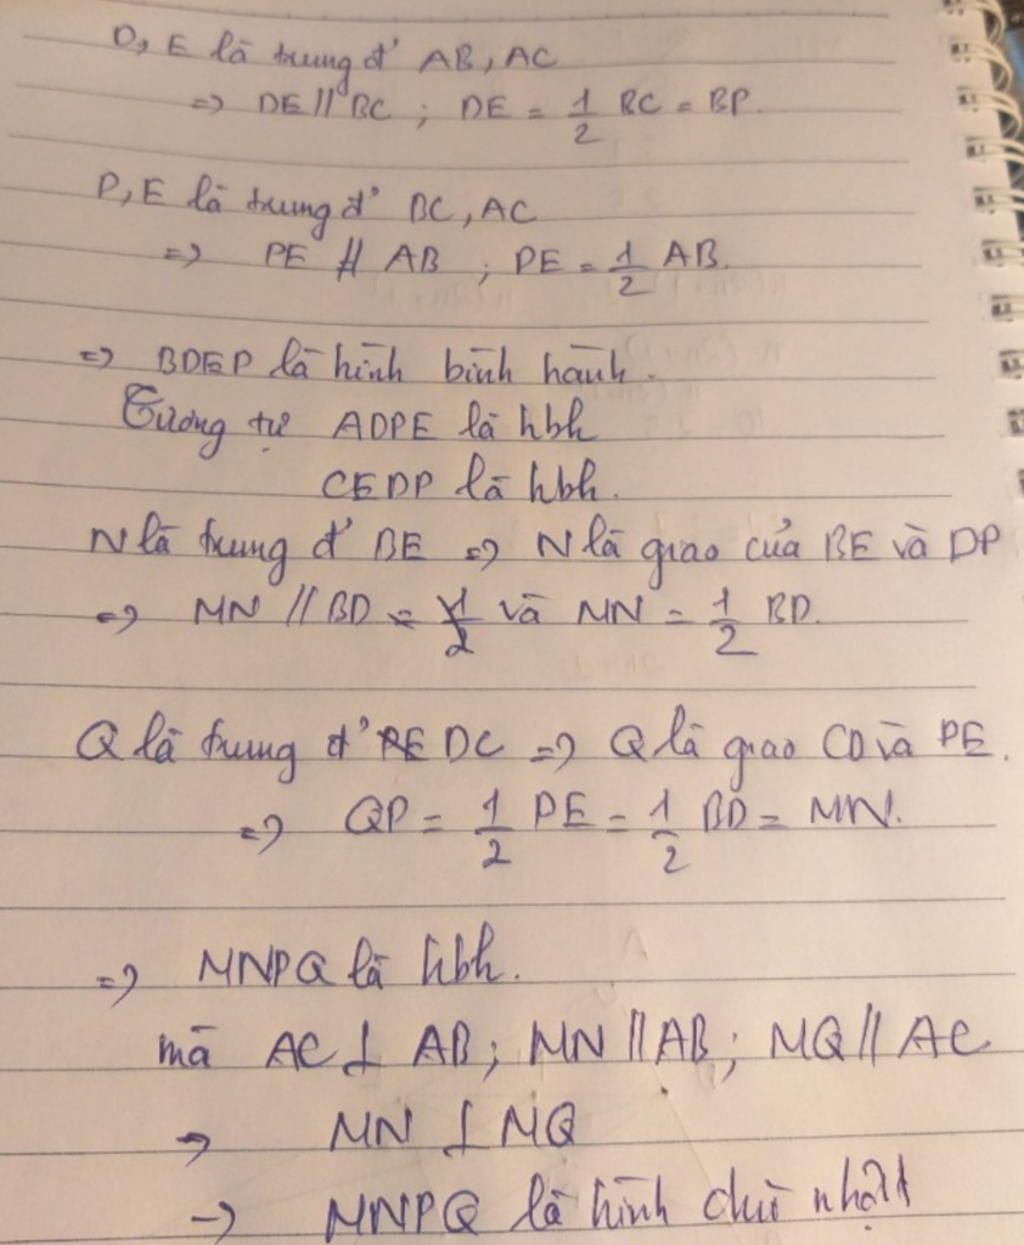 D, E là trung đ' AB, AC
=> DE // BC ; DE = 1/2 BC = BP.
P, E là trung đ' BC, AC
=> PE // AB ; PE = 1/2 AB.
=> BDEP là hình bình hành.
Tương tự ADPE là hbh
CEDP là hbh.
N là trung đ' BE => N là giao của BE và DP
=> MN // BD và MN = 1/2 BD.
Q là trung đ' DC => Q là giao CD và PE.
=> QP = 1/2 PE = 1/2 BD = MN.
=> MNPQ là hbh.
mà AC ⊥ AB; MN // AB; MQ // AC
=> MN ⊥ MQ
-> MNPQ là hình chữ nhật